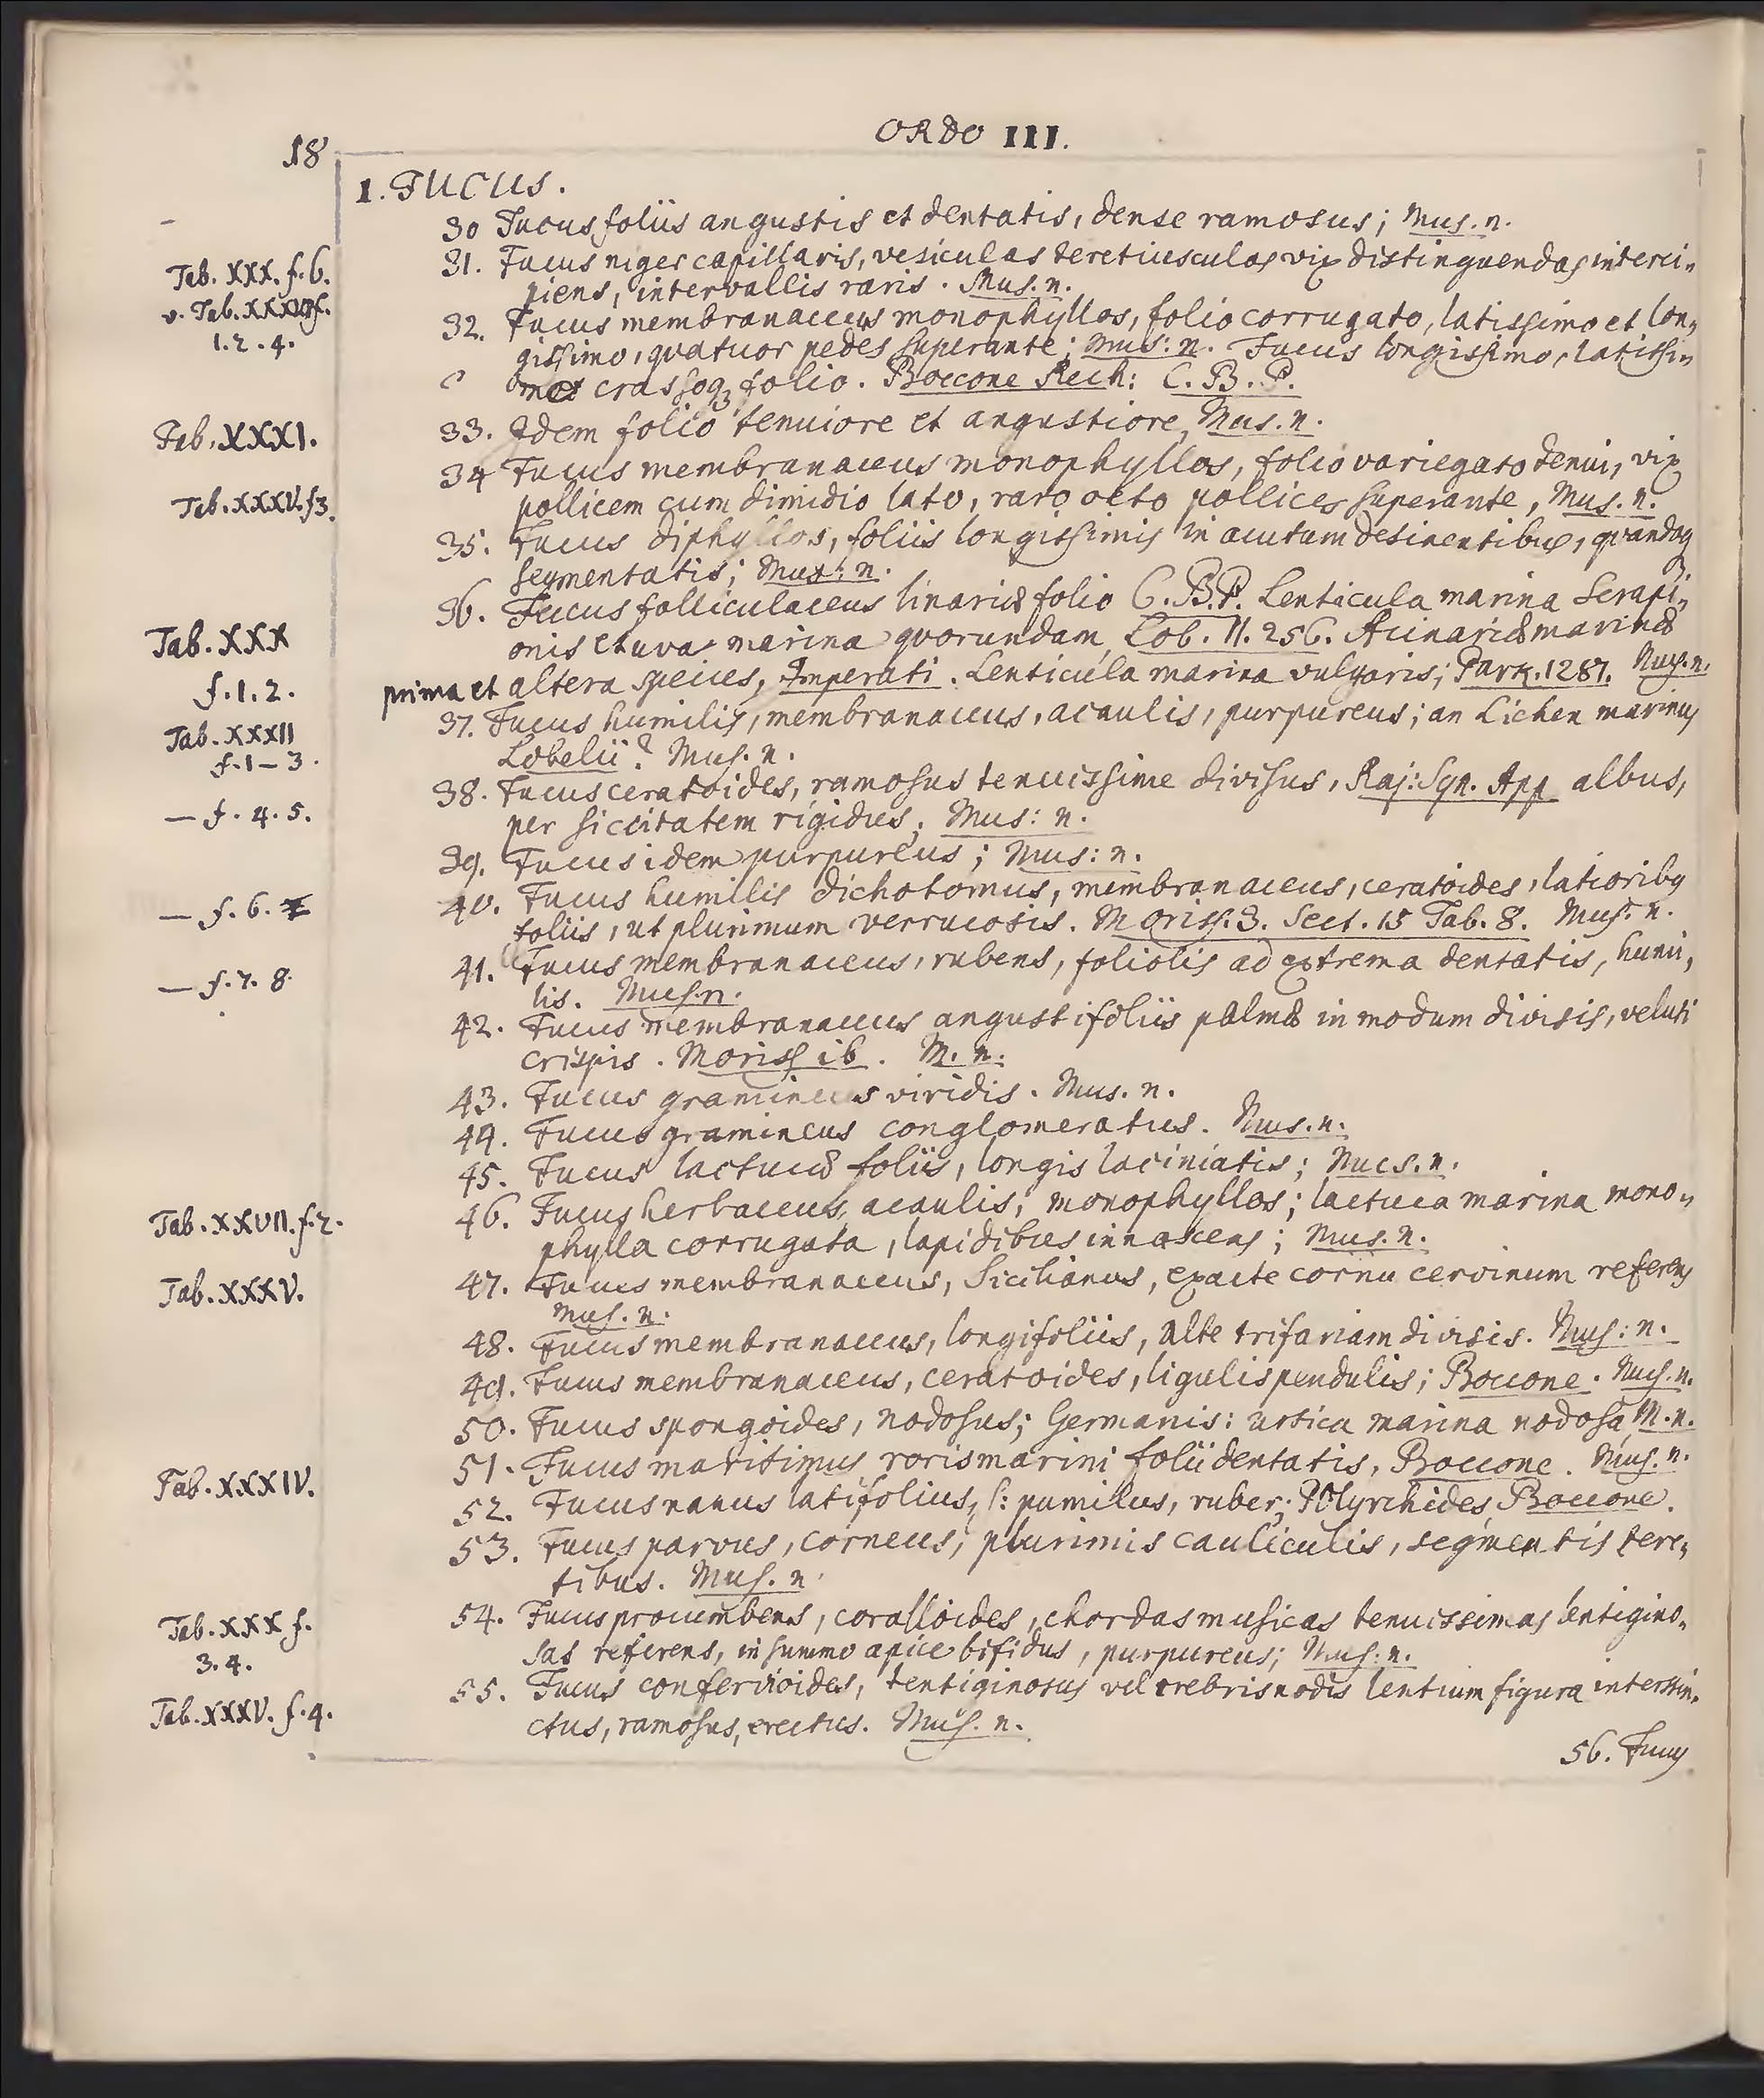 18
ORDO III.
1. FUCUS.
30 Fucus foliis angustis et dentatis, dense ramosus; Mus. n.
Tab. XXX. f. 6.
31. Fucus niger capillaris, vesiculas teretiusculas vix distinguendas interci„
piens, intervallis raris. Mus. n.
v. Tab. f.
1. 2. 4.
32. Fucus membranaceus monophyllos, folio corrugato, latissimo et lon„
gissimo, quatuor pedes superante; Mus: n. Fucus longissimo, latissi„
mo crassoq3 folio. Boccone Rech: C. B. P.
Tab. XXXI.
33. Idem folio tenuiore et angustiore, Mus. n.
Tab. XXXV. f3.
34 Fucus membranaceus monophyllos, folio variegato tenui, vix
pollicem cum dimidio lato, raro octo pollices superante, Mus. n.
35. Fucus diphyllos, foliis longissimis in acutum desinentibus, quandoq3
segmentatis; Mus: n.
Tab. XXX
f. 1. 2.
36. Fucus folliculaceus linariæ folio C. B. P. Lenticula marina Serapi„
onis et uva marina quorundam, Lob. II. 256. Acinariæ marinæ
prima et altera species, Imperati. Lenticula marina vulgaris; Park. 1281. Mus. n.
Tab. XXXII
f. 1 – 3.
37. Fucus humilis, membranaceus, acaulis, purpureus; an Lichen marinus
Lobelii? Mus. n.
— f. 4. 5.
38. Fucus ceratoides, ramosus tenuissime divisus, Raj: Syn. App albus,
per siccitatem rigidus; Mus: n.
39. Fucus idem purpureus; Mus: n.
— f. 6.
40. Fucus humilis dichotomus, membranaceus, ceratoides, latioribus
foliis, ut plurimum verrucosis. Moriss. 3. Sect. 15 Tab. 8. Mus. n.
— f. 7. 8.
41. Fucus membranaceus, rubens, foliolis ad extrema dentatis, humi„
lis. Mus. n.
42. Fucus membranaceus angustifoliis palmæ in modum divisis, veluti
crispis. Moriss ib. M. n.
43. Fucus gramineus viridis. Mus. n.
44. Fucus gramineus conglomeratus. Mus. n.
45. Fucus lactucæ foliis, longis laciniatis; Mus. n.
Tab. XXVII. f. 2.
46. Fucus herbaceus, acaulis, monophyllos; lactuca marina mono„
phylla corrugata, lapidibus innascens; Mus. n.
Tab. XXXV.
47. Fucus membranaceus, Sicilianus, exacte cornu cervinum referens
Mus. n.
48. Fucus membranaceus, longifoliis, alte trifariam divisis. Mus: n.
49. Fucus membranaceus, ceratoides, ligulis pendulis; Boccone. Mus. n.
50. Fucus spongoides, nodosus; Germanis: urtica marina nodosa, M. n.
51. Fucus maritimus rorismarini folii dentatis, Boccone. Mus. n.
Tab. XXXIV.
52. Fucus nanus latifolius, s: pumilus, ruber; Polyrchides, Boccone.
53. Fucus parvus, corneus, plurimis cauliculis, segmentis tere„
tibus. Mus. n.
Tab. XXX f.
3. 4.
54. Fucus procumbens, coralloides, chordas musicas tenuissimas lentigino„
sas referens, in summo apice bifidus, purpureus; Mus: n.
Tab. XXXV. f. 4.
55. Fucus confervoides, lentiginosus vel crebris nodis lentium figura interstin„
ctus, ramosus, erectus. Mus. n.
56. Fucus